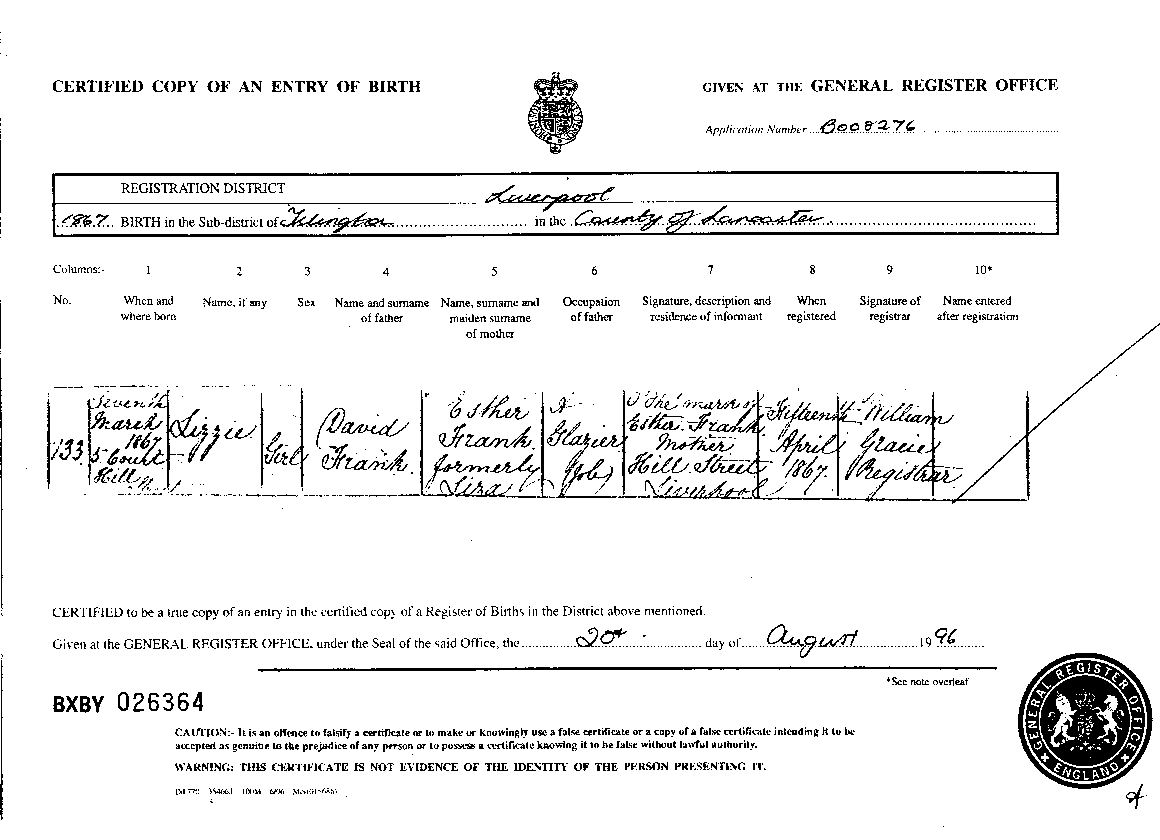 CERTIFIED COPY OF AN ENTRY OF BIRTH
GIVEN AT THE GENERAL REGISTER OFFICE
Application Number B008276
REGISTRATION DISTRICT Liverpool
1867. BIRTH in the Sub-district of Islington in the County of Lancaster
Columns:- 1 2 3 4 5 6 7 8 9 10*
No. When and where born
Name, if any
Sex
Name and surname of father
Name, surname and maiden surname of mother
Occupation of father
Signature, description and residence of informant
When registered
Signature of registrar
Name entered after registration
133
Seventh
March
1867
5 Court
Hill
Lizzie
Girl
David
Frank
Esther
Frank
formerly
Liza
A
Glazier
(Job)
The mark of
Esther Frank
Mother
Hill Street
Liverpool
Fifteenth
April
1867.
William
Gracie
Registrar
CERTIFIED to be a true copy of an entry in the certified copy of a Register of Births in the District above mentioned.
Given at the GENERAL REGISTER OFFICE, under the Seal of the said Office, the 20th day of August 1996
*See note overleaf
BXBY 026364
CAUTION:- It is an offence to falsify a certificate or to make or knowingly use a false certificate or a copy of a false certificate intending it to be
accepted as genuine to the prejudice of any person or to possess a certificate knowing it to be false without lawful authority.
WARNING: THIS CERTIFICATE IS NOT EVIDENCE OF THE IDENTITY OF THE PERSON PRESENTING IT.
GENERAL REGISTER OFFICE
ENGLAND